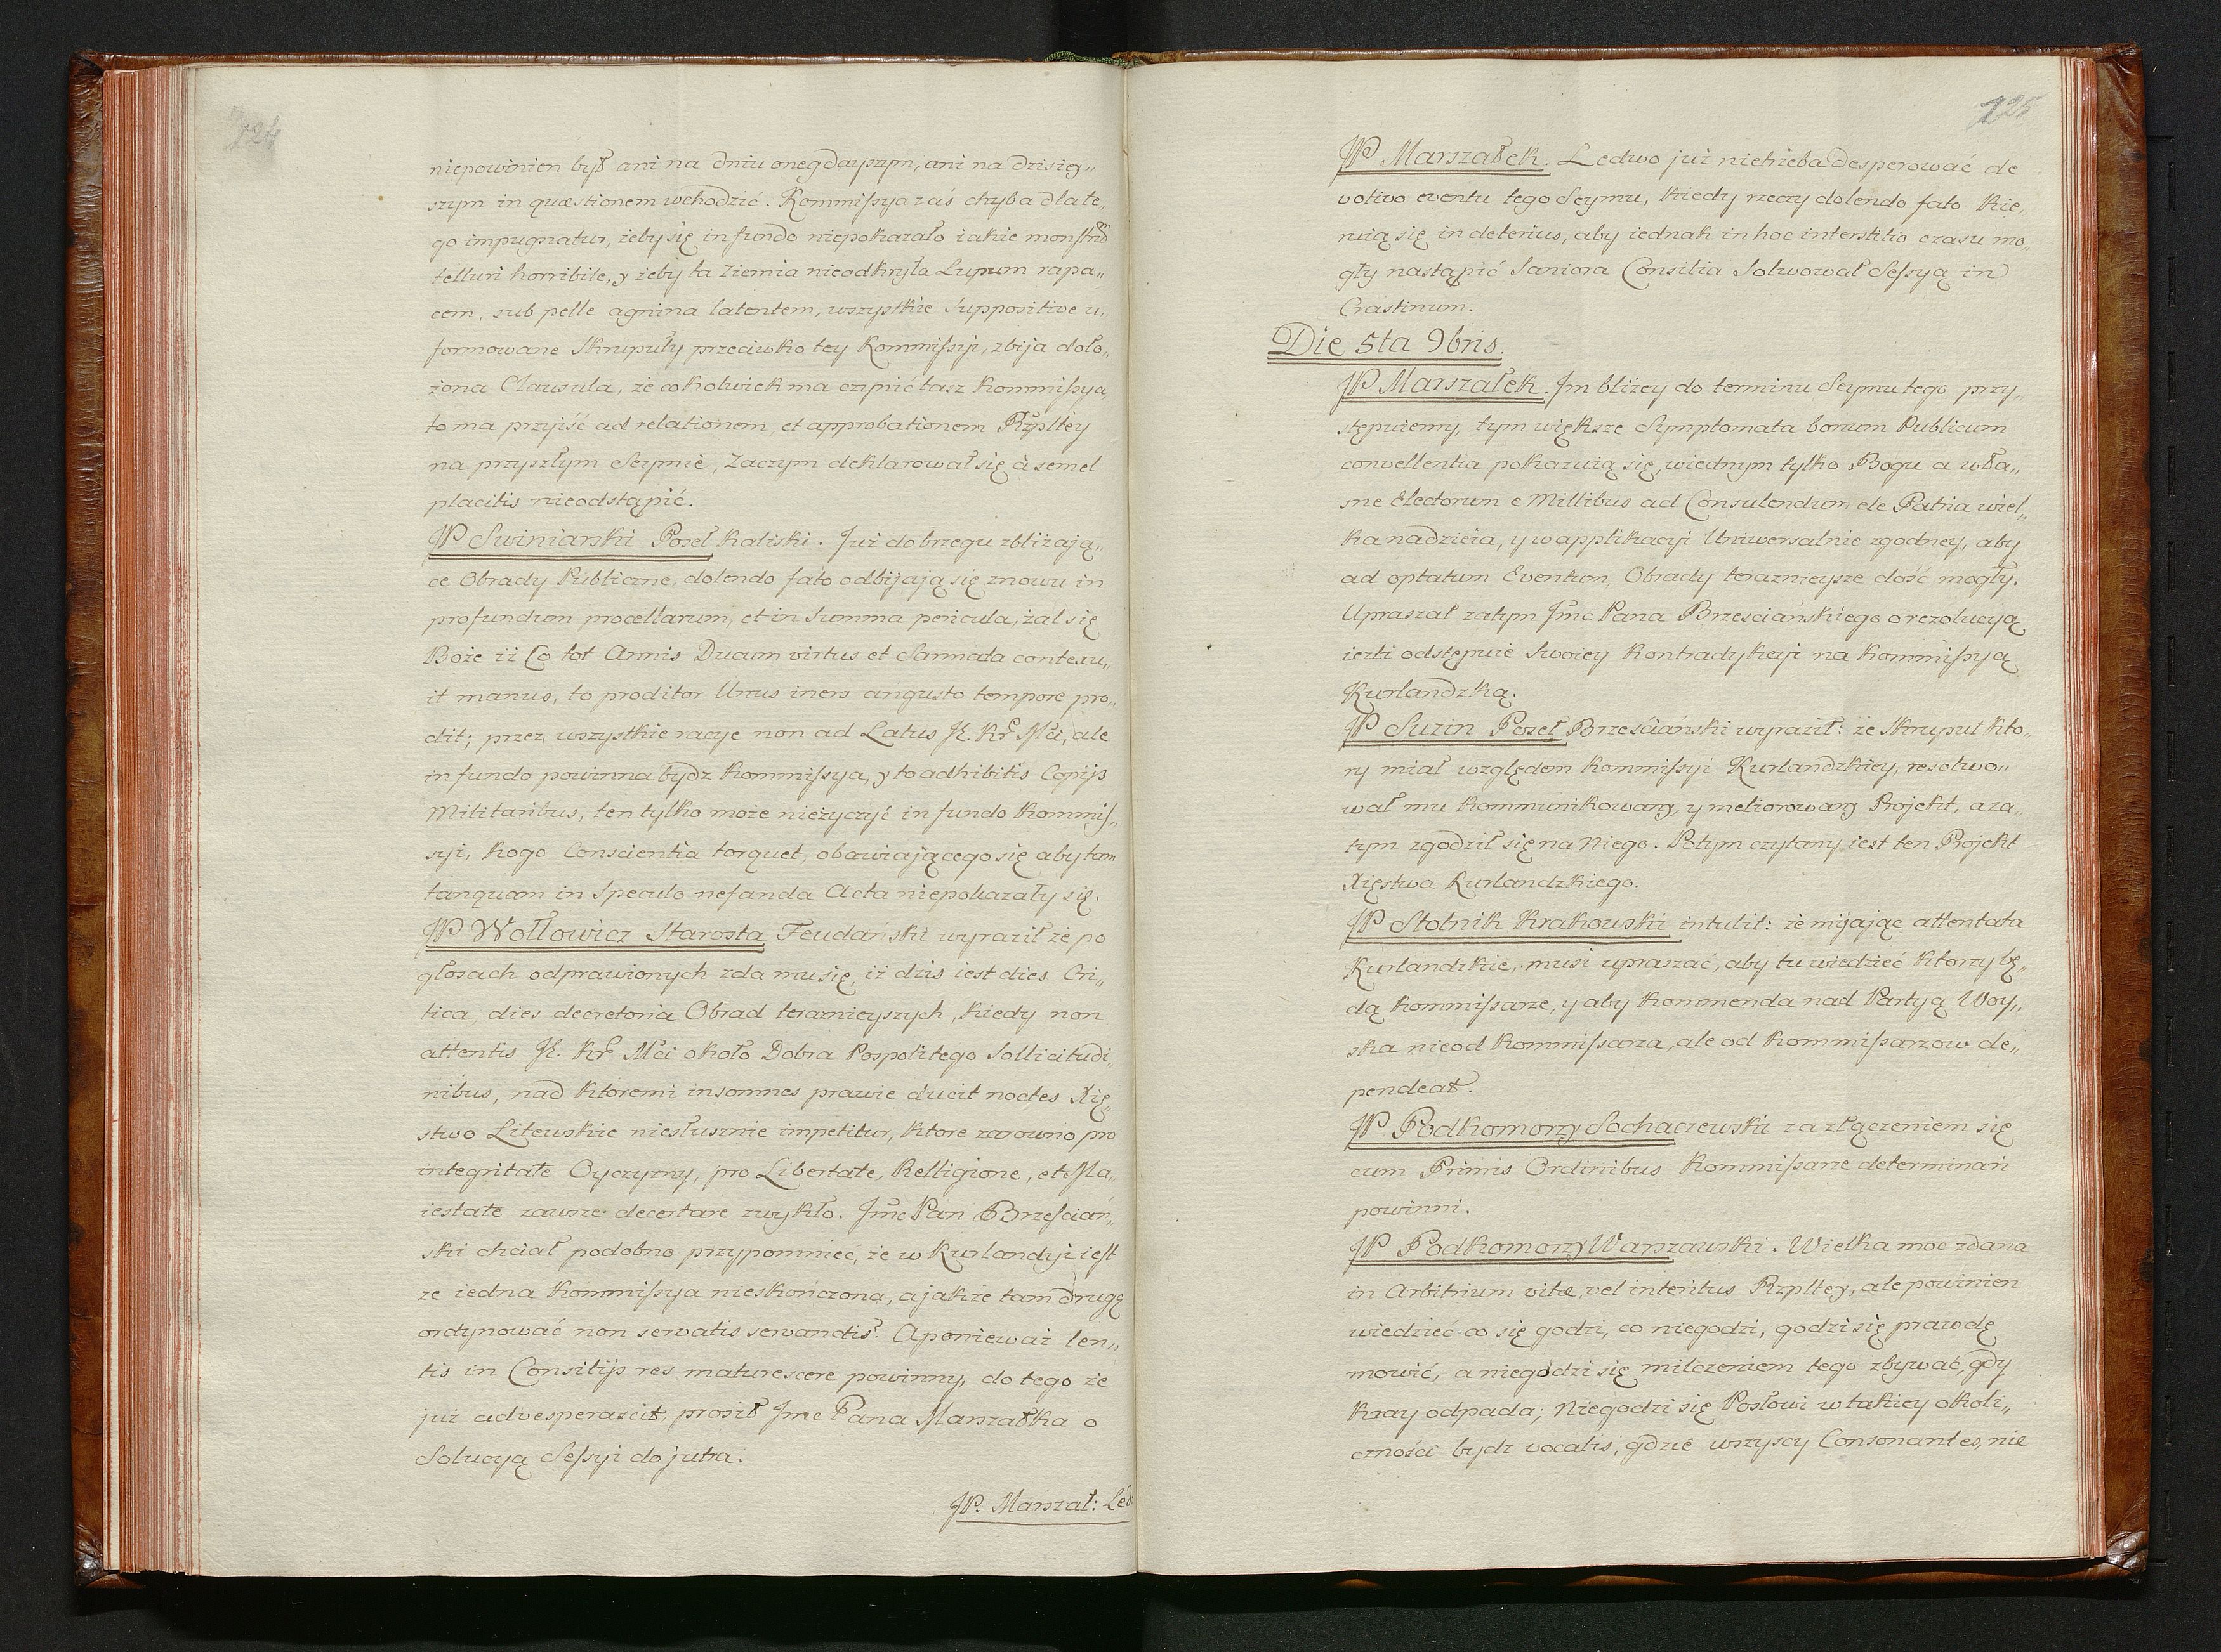 124
niepowinien był ani na dniu onegdayszym, ani na dzisiey„
szym in quæstionem wchodzić. Kommissya zaś chyba dla te„
go impugnatur, żeby się in fundo niepokazało iakie monstrū
telluri horribile, y żeby ta ziemia nieodkryła Lupum rapa„
cem, sub pelle agnina latentem, wszystkie Suppositive u„
formowane Skrupuły przeciwko tey Kommissyi, zbija doło„
żona Clausula, że cokolwiek ma czynić tasz Kommissya,
to ma przyiść ad relationem, et approbationem Rzpltey
na przyszłym Seymie, Zaczym deklarował się à semel
placitis nieodstąpić.
JP Swiniarski Poseł Kaliski. Już do brzegu zbliżają„
ce Obrady Publiczne, dolendo fato odbijają się znowu in
profundum procellarum, et in Summa pericula, żal się
Boże iż Co tot Annis Ducum virtus et Sarmata contexu„
it manus, to proditor Unus iners angusto tempore pro„
dit; przez wszystkie racye non ad Latus JK. Kr̃ Mci, ale
in fundo powinna bydz Kommissya, y to adhibitis Copijs
Militaribus, ten tylko może nieżyczyć in fundo Kommis„
syi, kogo Conscientia torquet, obawiającego się aby tam
tanquam in Speculo nefanda Acta niepokazały się.
JP Wołłowicz Starosta Feudański wyraził że po
głosach odprawionych zda mu się, iż dzis iest dies Cri„
tica, dies decretoria Obrad teraznieyszych, kiedy non
attentis JK. Kr̃ Mci około Dobra Pospolitego Sollicitudi„
nibus, nad ktoremi insomnes prawie ducit noctes Xię„
stwo Litewskie niesłusznie impetitur, ktore zarowno pro
integritate Oyczyzny, pro Libertate, Relligione, et Ma„
iestate zawsze decertare zwykło. Jmc Pan Brzescian„
ski chciał podobno przypomnieć, że w Kurlandyi iest
ze iedna Kommissya nieskończona, a jakże tam drugę
ordynować non servatis servandis? A ponieważ len„
tis in Consilijs res maturescere powinny, do tego że
już advesperascit, prosił Jmc Pana Marszałka o
Solucyą Sessyi do jutra.
JP. Marszał: Led
125
JP Marszałek. Ledwo już nietrzeba desperować de
votivo eventu tego Seymu, kiedy rzeczy dolendo fato kie„
rują się in deterius, aby iednak in hoc interstitio czasu mo„
gły nastąpić Saniora Consilia Solwował Sessyą in
Crastinum.
Die 5ta 9bris.
JP Marszałek. Im bliżey do terminu Seymu tego przy„
stępuiemy, tym większe Symptomata bonum Publicum
convellentia pokazuią się, wiednym tylko Bogu a w ła„
sne Electorum e Millibus ad Consulendum de Patria wiel„
ka nadzieia, y w applikacyi Uniwersalnie zgodney, aby
ad optatum Eventum, Obrady teraznieysze dość mogły.
Upraszał zatym Jmc Pana Brzesciańskiego o rezolucyą
ieżli odstępuie Swoiey Kontradykcyi na Kommissyą
Kurlandzką.
JP Suzin Poseł Brzesćiański wyraził: że Skrupuł kto„
ry miał względem Kommissyi Kurlandzkiey, resolwo„
wał mu kommunikowany, y meliorowany Projekt, a za„
tym zgodził się na Niego. Potym czytany iest ten Projekt
Xięstwa Kurlandzkiego.
JP Stolnik Krakowski intulit: że mijając attentata
Kurlandzkie, musi upraszać, aby tu wiedzieć ktorzy bę„
dą Kommissarze, y aby Kommenda nad Partyą Woy„
ska nieod Kommissarza, ale od Kommissarzow de„
pendeat.
JP Podkomorzy Sochaczewski za złączeniem się
cum Primis Ordinibus Kommissarze determinari
powinni.
JP Podkomorzy Warszawski. Wielka moc zdana
in Arbitrium vitæ, vel interitus Rzpltey, ale powinien
wiedzieć co się godzi, co niegodzi, godzi się prawdę
mowić, a niegodzi się milczeniem tego zbywać, gdy
Kray odpada; Niegodzi się Posłowi w takiey okoli„
czności bydz vocalis, gdzie wszyscy Consonantes, nie